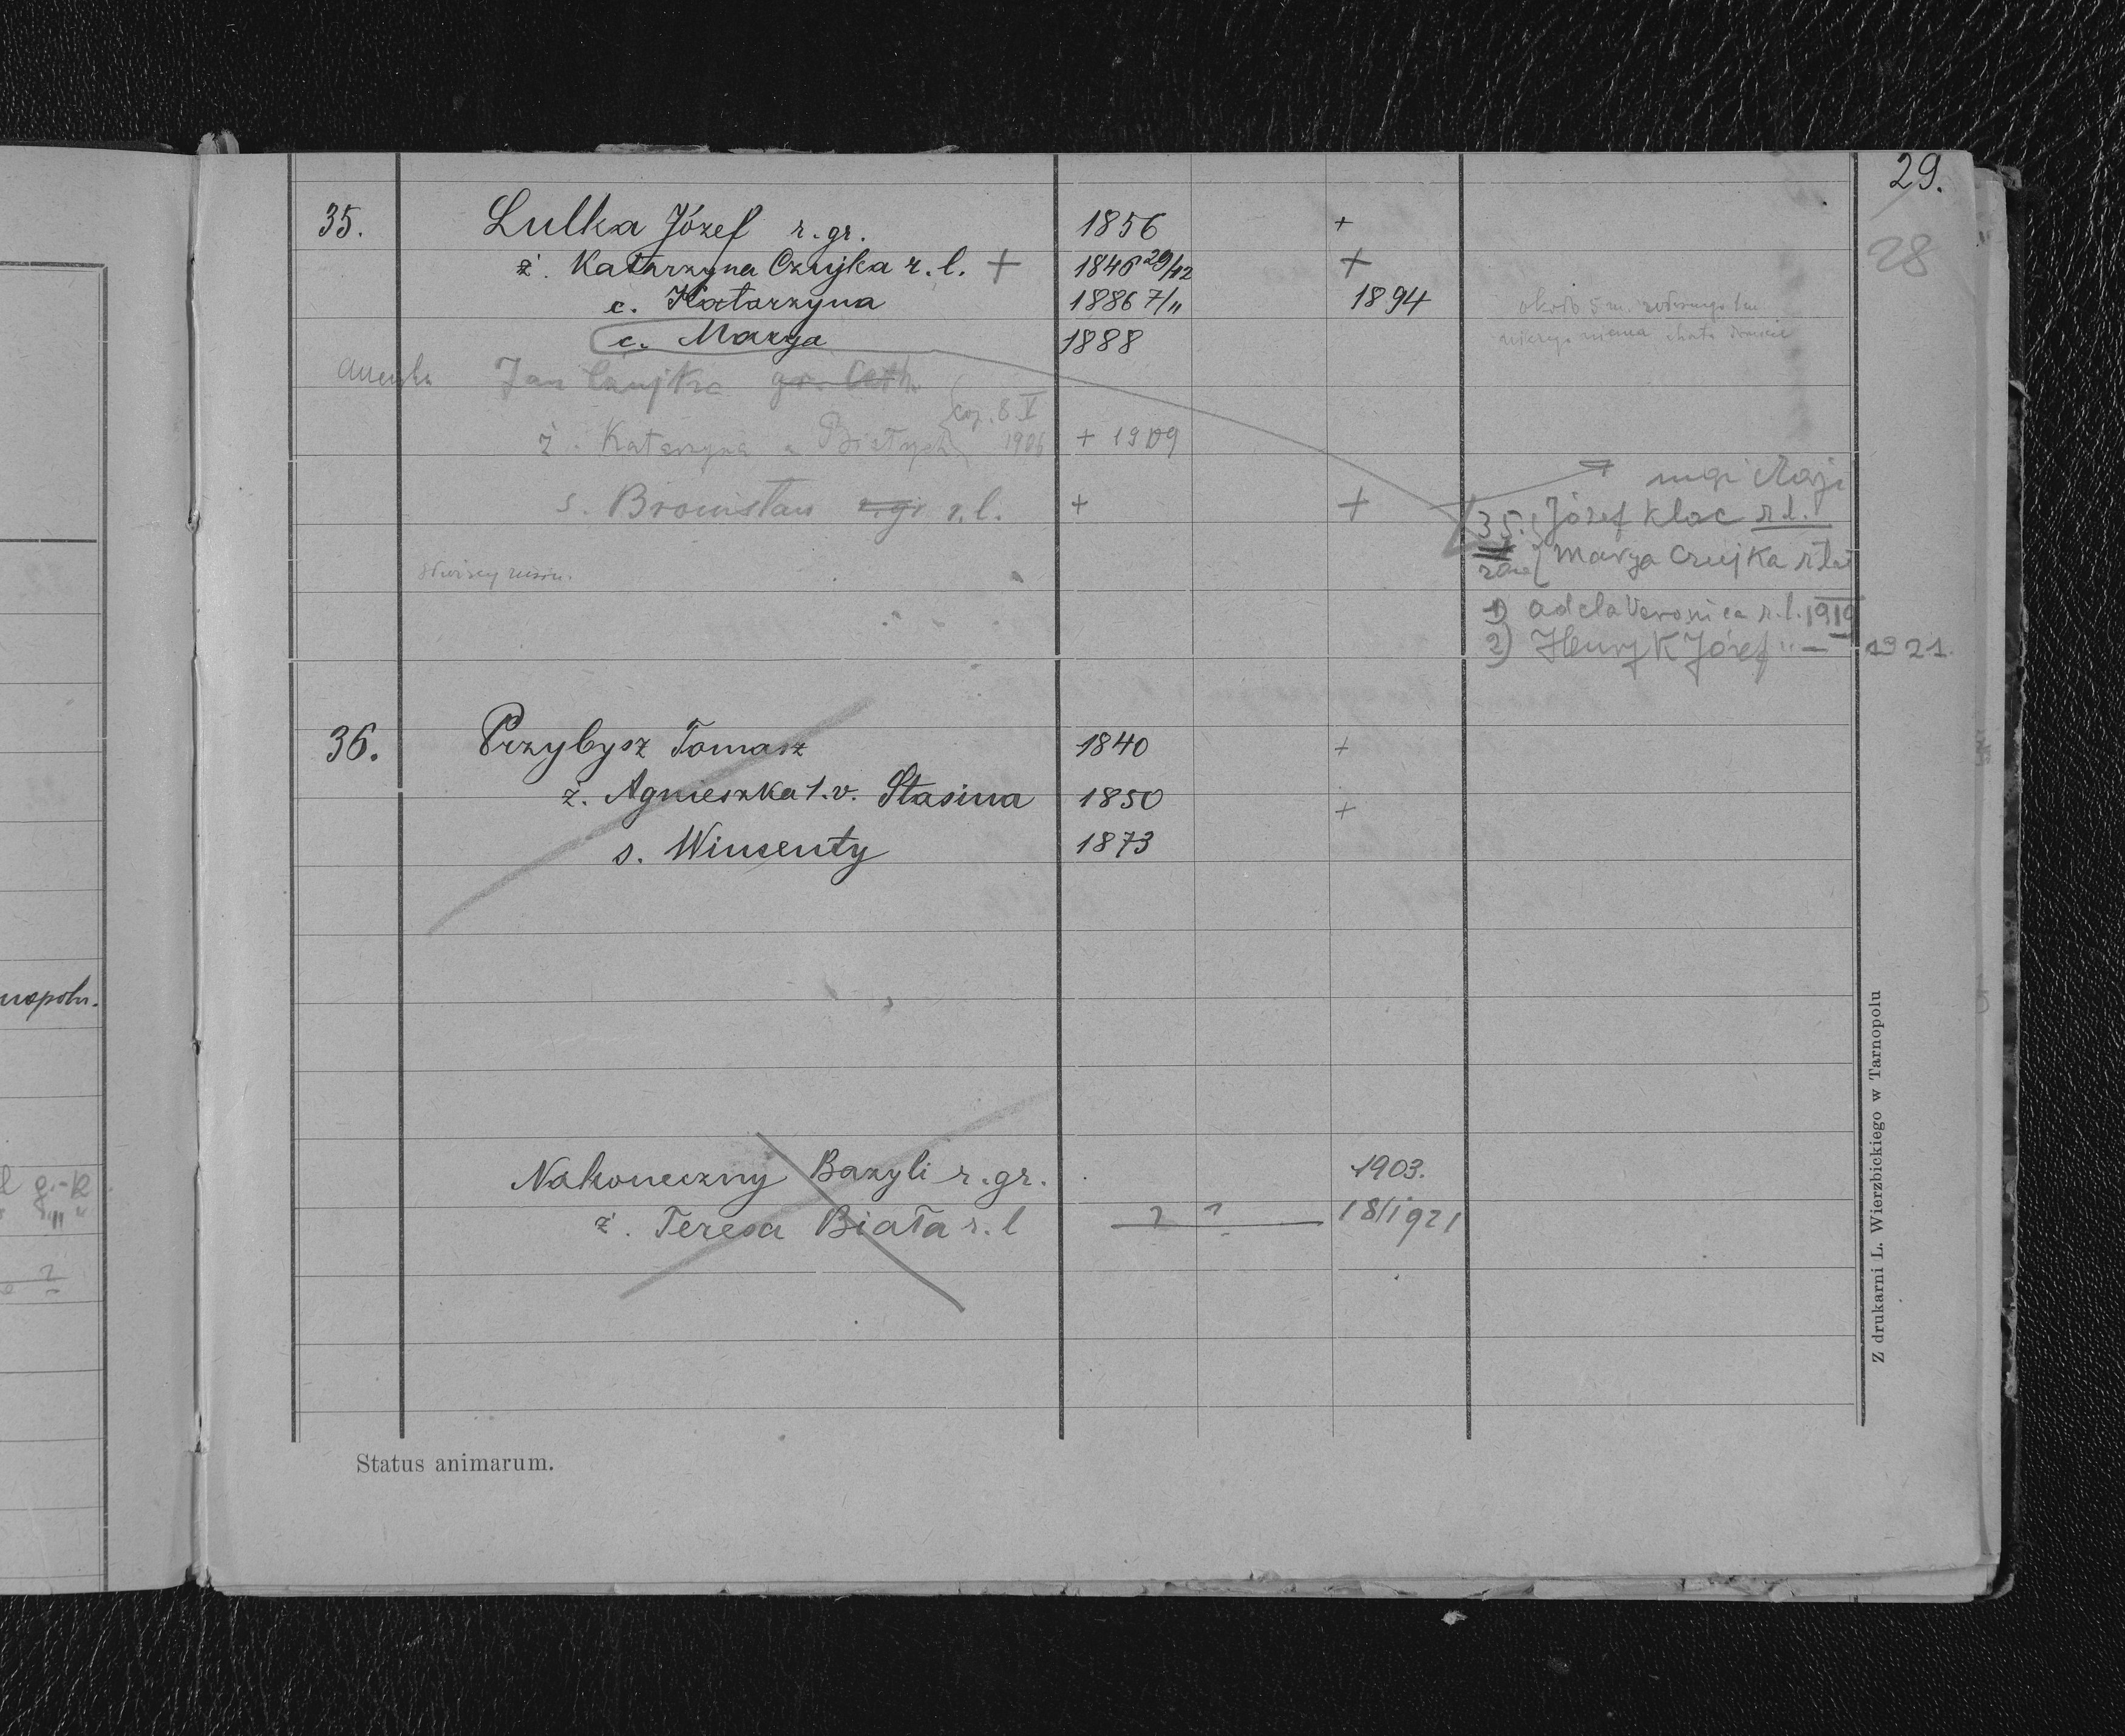 29.
28
35. Lulka Józef r. gr. 1856 +
ż. Katarzyna Czujka r. l. + 1846 29/12 +
c. Katarzyna 1886 7/11 1894
c. Marya 1888
Jan Czujka gr. Cath
cop. 8. V
ż. Katarzyna 1906 + 1909
s. Bronisław r. gr r. l. + +
35. Józef Klac r. l.
Marya Czujka
1) Adela Veronica r. l. 1919
2) Henryk Józef " — 1921.
36. Przybysz Tomasz 1840 +
ż. Agnieszka 1. v. Stasina 1850 +
s. Wincenty 1873
Nakoneczny Bazyli r. gr. 1903.
ż. Teresa Biała r. l ? ? 18/I 921
Status animarum.
Z drukarni L. Wierzbickiego w Tarnopolu